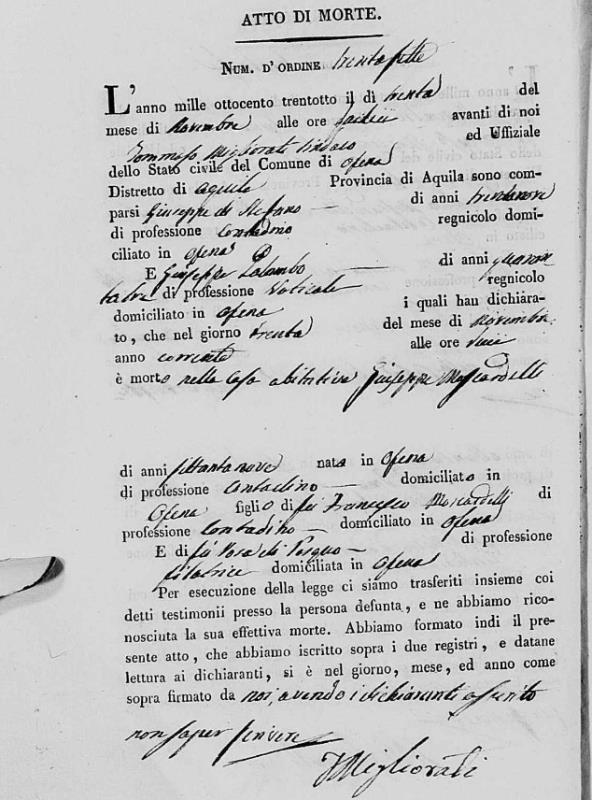 ATTO DI MORTE.
NUM. D'ORDINE trentasette
L'anno mille ottocento trentotto il dì trenta del
mese di Novembre alle ore sedici avanti di noi
Tommaso Migliorati Sindaco ed Uffiziale
dello Stato civile del Comune di Ofena
Distretto di aquila Provincia di Aquila sono com-
parsi Giuseppe di Stefano di anni trentanove
di professione contadino regnicolo domi-
ciliato in Ofena
E Giuseppe Colombo di anni quaran
tatre di professione regnicolo
domiciliato in Ofena i quali han dichiara-
to, che nel giorno trenta del mese di Novembre
anno corrente alle ore dieci
è morto nella Casa abitativa Giuseppe Moscardelli
di anni settantanove nato in Ofena
di professione Contadino domiciliato in
Ofena figlio di fu Francesco Moscardelli di
professione Contadino domiciliato in Ofena
E di fu Rosa di di professione
filatrice domiciliata in Ofena
Per esecuzione della legge ci siamo trasferiti insieme coi
detti testimonii presso la persona defunta, e ne abbiamo rico-
nosciuta la sua effettiva morte. Abbiamo formato indi il pre-
sente atto, che abbiamo iscritto sopra i due registri, e datane
lettura ai dichiaranti, si è nel giorno, mese, ed anno come
sopra firmato da noi, avendo i dichiaranti asserito
non saper scrivere
TMigliorati